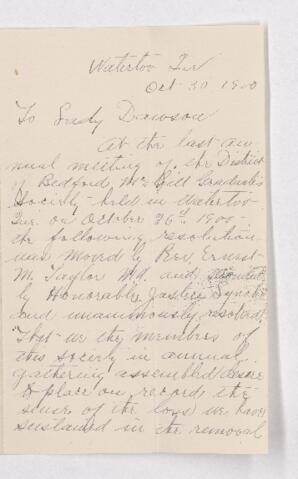 Waterloo Que
Oct 30, 1900
To Lady Dawson
At the last an
nual meeting of the District
of Bedford, McGill Graduates
Society - held in Waterloo
Que. on October 26th 1900 -
the following resolution
was moved by Rev. Ernest
M. Taylor M.A. and seconded
by Honorable Justice Lynch
and unanimously resolved,
"That we the members of
this Society in annual
gathering assembled desire
to place on record the
sense of the loss we have
sustained in the removal